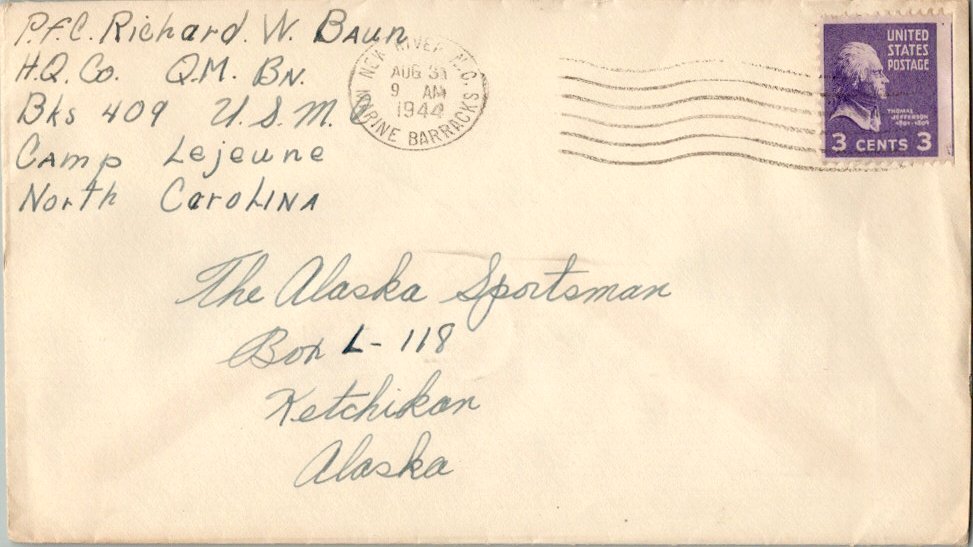 P.f.C. Richard. W. Baun
H.Q. Co. Q.M. Bn.
Bks 409 U.S.M.C
Camp Lejeune
North Carolina
NEW RIVER N.C.
AUG 31
9 AM
1944
MARINE BARRACKS
UNITED
STATES
POSTAGE
THOMAS
JEFFERSON
1801-1809
3 CENTS 3
The Alaska Sportsman
Box L-118
Ketchikan
Alaska